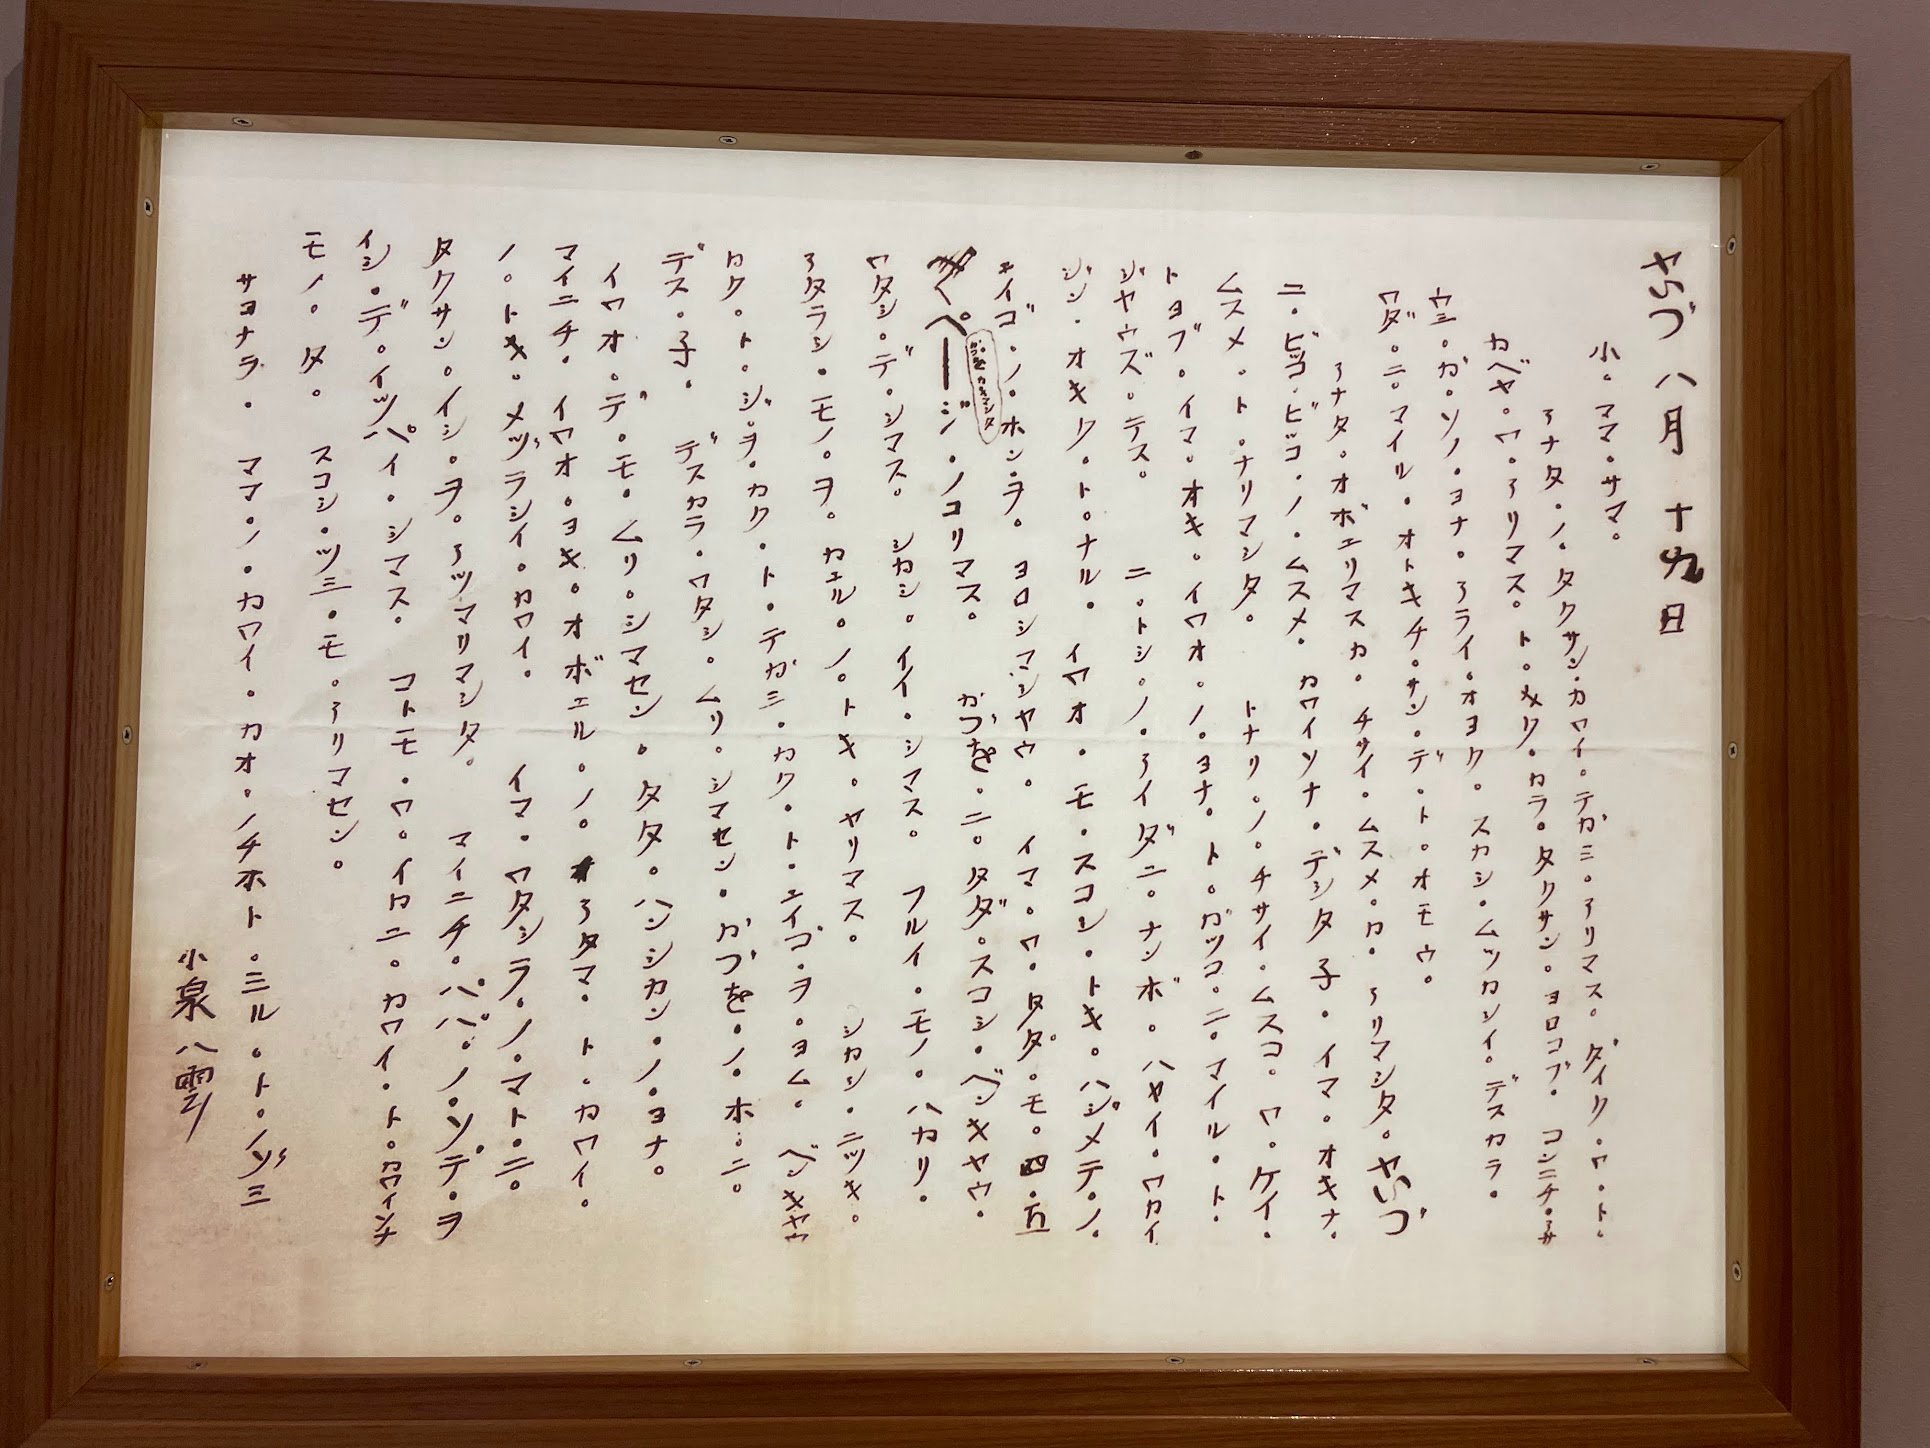 やいづ 八月 十九日
小。ママ。サマ。
アナタ。ノ。タクサン。カワイ。テガミ。アリマス。ダイク。ワ。ト。
カベヤ。ワ。アリマス。ト。キク。カラ。タクサン。ヨロコブ。コンニチ。アサ
ウミ。ガ。ソノ。ヨナ。アライ。オヨク。スカシ。ムツカシイ。デスカラ。
ワダ。ニ。マイル。オトキチ。サン。デ。ト。オモウ。
アナタ。オボエリマスカ。チサイ。ムスメ。カ。アリマシタ。やいづ
ニ。ビツコ。ビツコ。ノ。ムスメ。カワイソナ。デシタ 子。イマ。オキナ。
ムスメ。ト。ナリマシタ。トナリ。ノ。チサイ。ムスコ。ワ。ケイ。
トヨブ。イマ。オキ。イワオ。ノ。ヨナ。ト。ガツコ。ニ。マイル。ト。
ジヤウズ。デス。ニ。トシ。ノ。アイダニ。ナンボ。ハヤイ。ワカイ
ジン。オキク。ト。ナル。イワオ。モ。スコシ。トキ。ハジメテ。ノ。
エイゴ。ノ。ホン。ヲ。ヨロシマシヤウ。イマ。ワ。タダ。モ。四。五
ページ。ノコリマス。かづを。ニ。タダ。スコシ。ベンキヤウ。
カキマシタ
ワタシ。デ。シマス。シカシ。イイ。シマス。フルイ。モノ。ハカリ。
アタラシ。モノ。ヲ。カエル。ノ。トキ。ヤリマス。シカシ。ニツキ。
カク。ト。ジ。ヲ。カク。ト。テガミ。カク。ト。エイゴ。ヲ。ヨム。ベンキヤウ
デス。子。デスカラ。ワタシ。ムリ。シマセン。かづを。ノ。ホ。ニ。
イワオ。デ。モ。ムリ。シマセン。タタ。ハンシカン。ノ。ヨナ。
マイニチ。イワオ。ヨキ。オボエル。ノ。アタマ。ト。カワイ。
ノ。トキ。メヅラシイ。カワイ。イマ。ワタシラ。ノ。マト。ニ。
タクサン。イシ。ヲ。アツマリマシタ。マイニチ。パパ。ノ。ソデ。ヲ
イシ。デ。イツパイ。シマス。コトモ。ワ。イロニ。カワイ。ト。カワイソナ
モノ。タ。スコシ。ツミ。モ。アリマセン。
サヨナラ。ママ。ノ。カワイ。カオ。ノチホト。ミル。ト。ノゾミ
小泉八雲